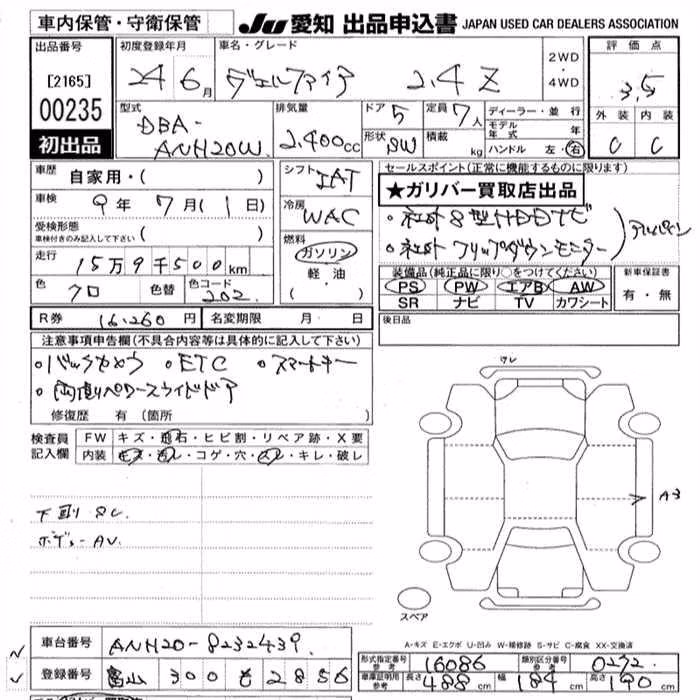 車内保管・守衛保管
JU 愛知 出品申込書 JAPAN USED CAR DEALERS ASSOCIATION
出品番号 [2165] 00235 初出品
初度登録年月 24 6月
車名・グレード ヴェルファイア 2.4Z
2WD・4WD
評価点 3.5
外装 内装 C C
型式 DBA-ANH20W
排気量 2,400cc
ドア 5 定員 7人
形状 SW 積載 kg
ディーラー・並行
モデル年式 年
ハンドル 左・右
車歴 自家用・( )
車検 9年 7月( 1日)
受検形態 車検付きのみ記入して下さい ( )
走行 15万9千500km
色 クロ 色替 色コード 202
シフト IAT
冷房 WAC
燃料 ガソリン 軽油 ・( )
セールスポイント(正常に機能するものに限り)
★ガリバー買取店出品
・社外8型HDDナビ
・社外フリップダウンモニター
アルパイン
装備品(純正品に限り○をつけてください)
PS PW エアB AW
SR ナビ TV カワシート
新車保証書 有・無
R券 16,260円 名変期限 月・ 日
後日品
注意事項申告欄(不具合内容等は具体的に記入して下さい)
・バックカメラ ・ETC ・スマートキー
・両側パワースライドドア
修復歴 有 (箇所 )
検査員記入欄
FW キズ・飛石・ヒビ割・リペア跡・X要
内装 キズ・汚レ・コゲ・穴・スレ・キレ・破レ
下廻り
ボディー
A3
スペア
A-キズ E-エクボ U-凹み W-補修跡 S-サビ C-腐食 XX-交換済
車台番号 ANH20-8232439
登録番号 富山 300 2856
型式指定番号 参考 16086 類別区分番号 参考 0272
車庫証明用 参考 長さ 488cm 幅 184cm 高さ 190cm